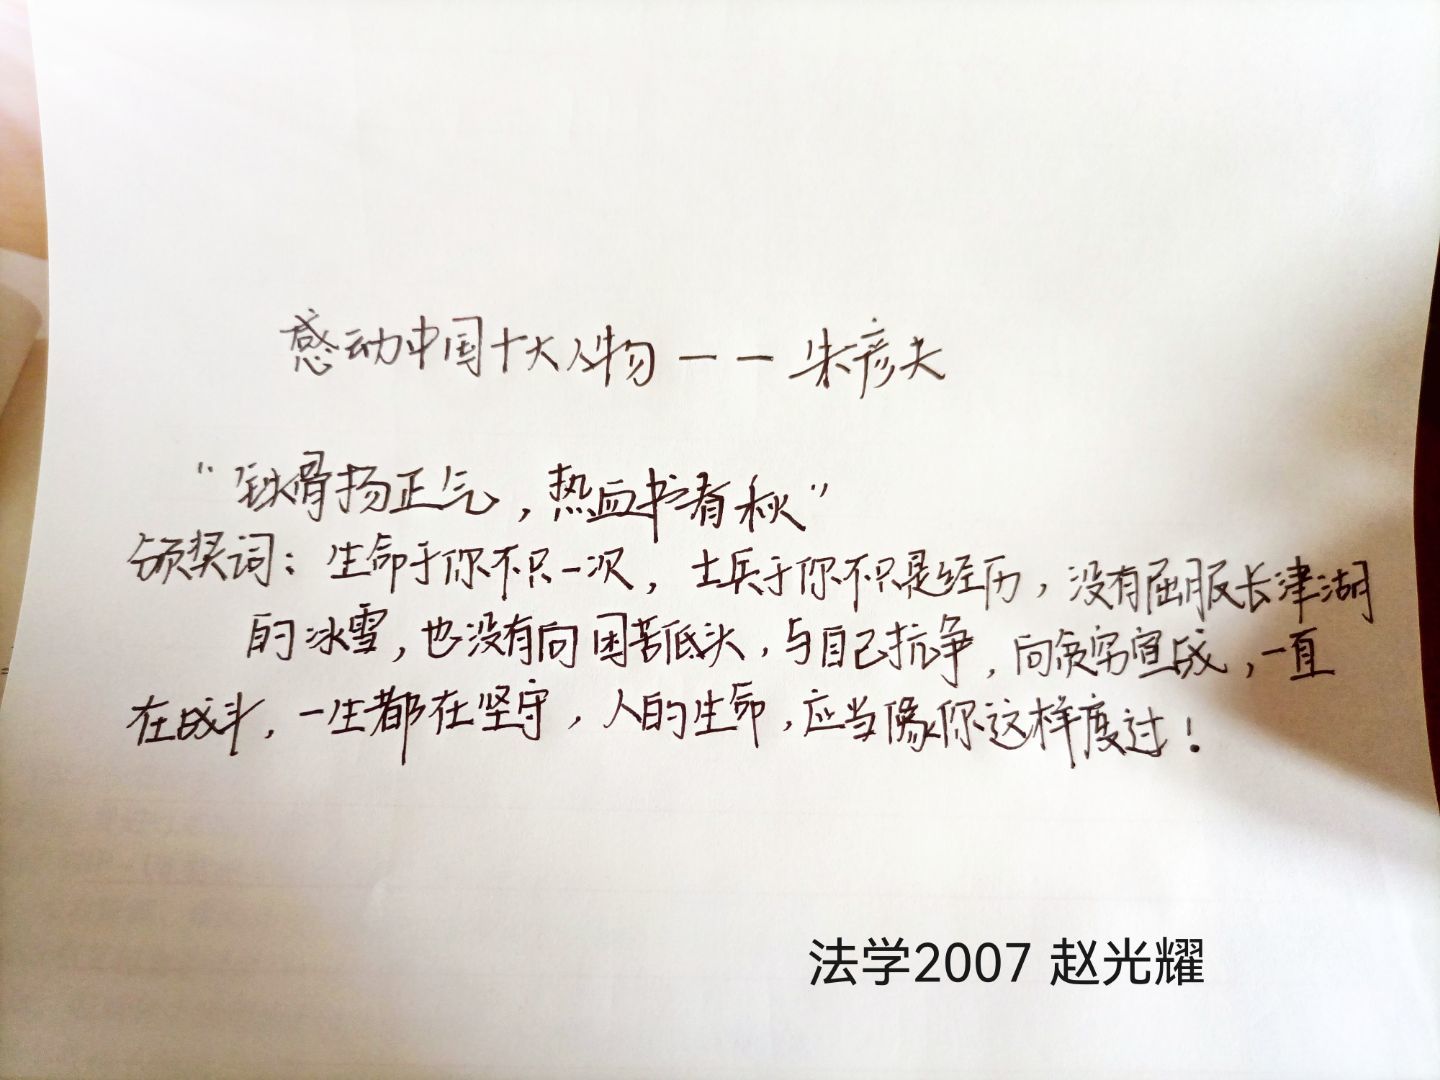 感动中国十大人物——朱彦夫
“铁骨扬正气，热血书春秋”
颁奖词：生命于你不只一次，士兵于你不只是经历，没有屈服长津湖
的冰雪，也没有向困苦低头，与自己抗争，向贫穷宣战，一直
在战斗，一生都在坚守，人的生命，应当像你这样度过！
法学2007 赵光耀